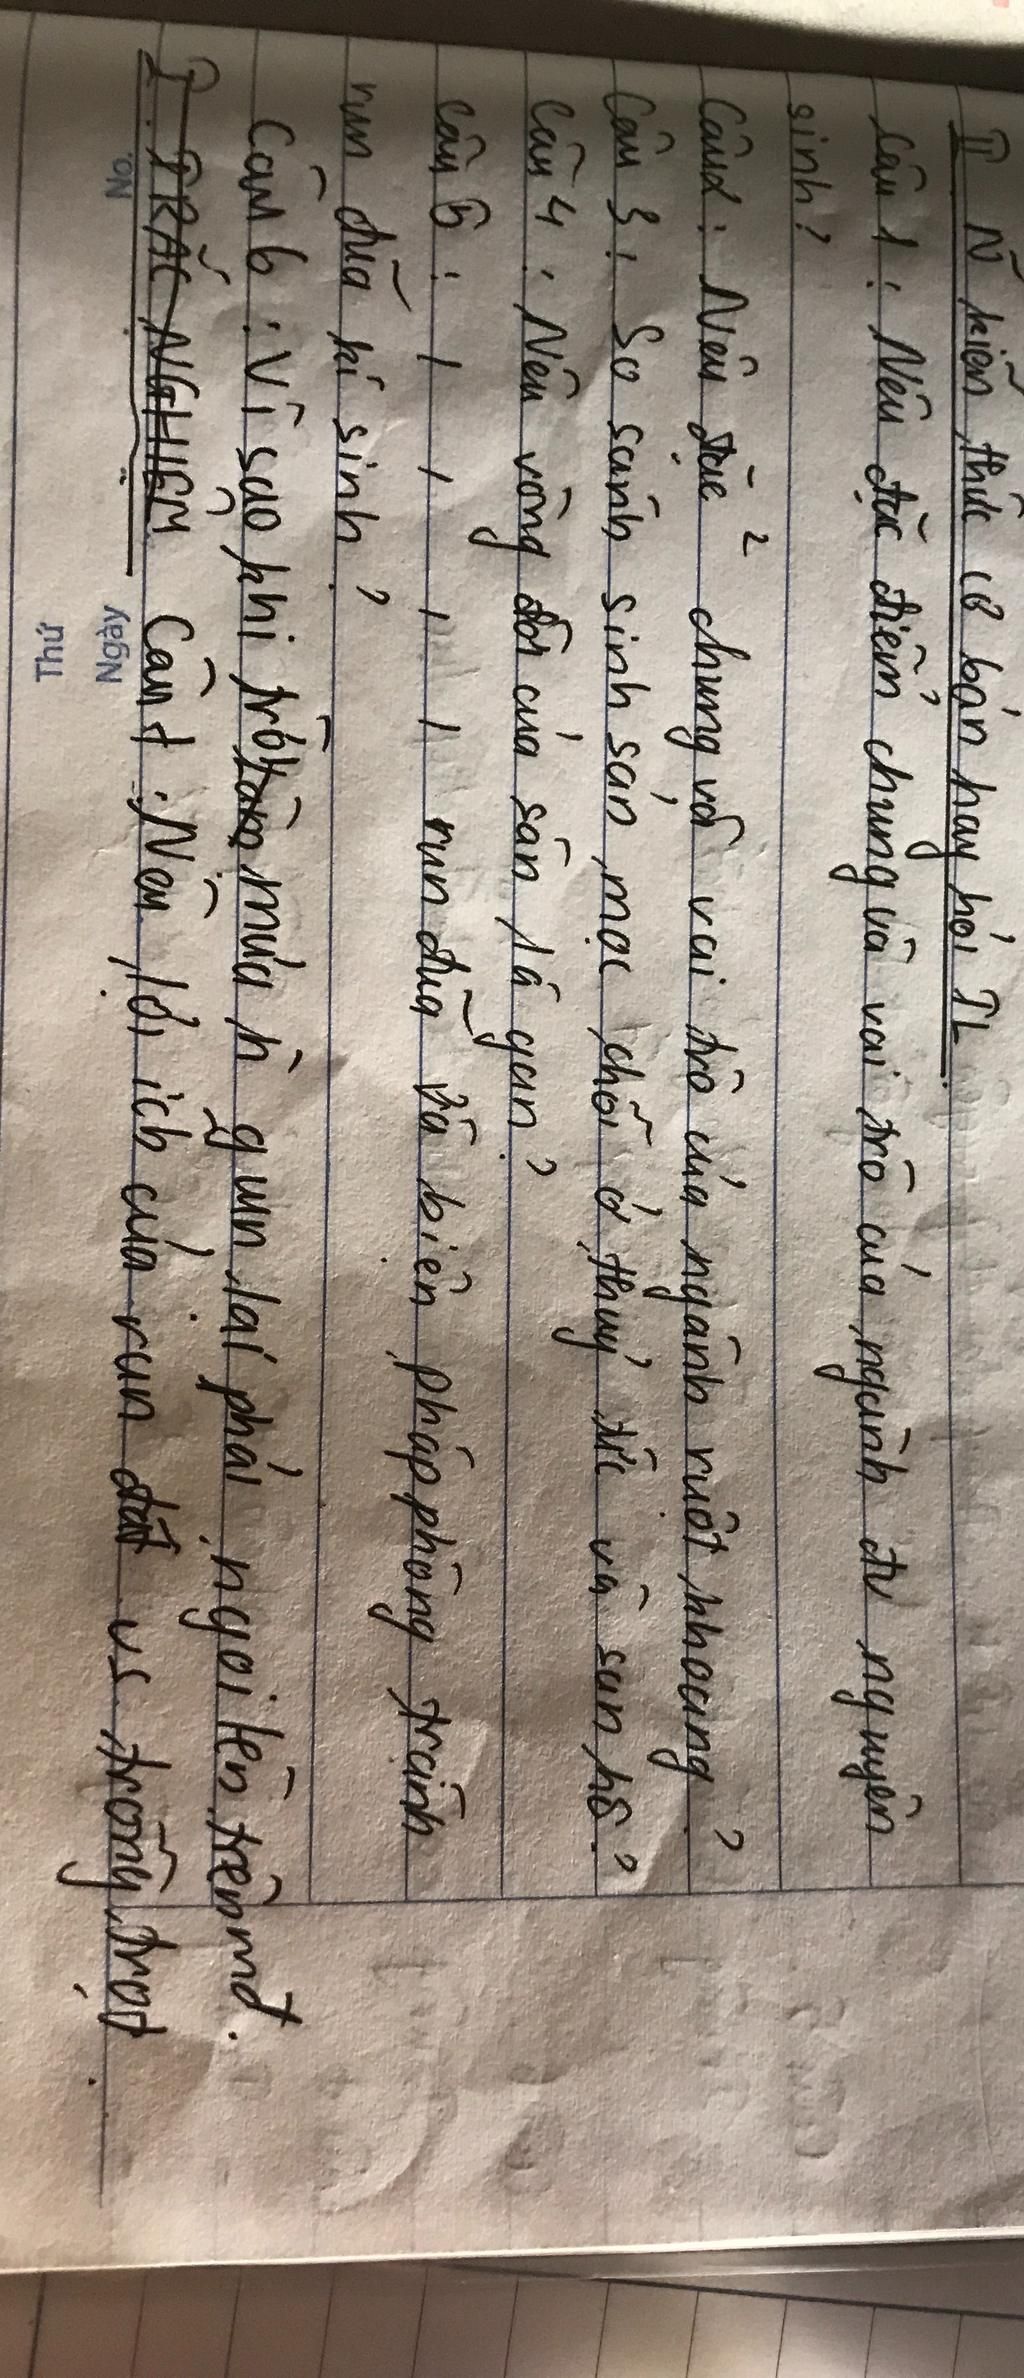 II Ñ kiến thức cơ bản hay hỏi TL
Câu 1: Nêu đặc điểm chung và vai trò của ngành đv nguyên
sinh?
Câu2: Nêu đặc ² chung và vai trò của ngành ruột khoang?
Câu 3: So sánh sinh sản mọc chồi ở thuỷ tức và san hô?
Câu 4: Nêu vòng đời của sán lá gan?
Câu 5: / / / / run đũa và biện pháp phòng tránh
run đũa kí sinh?
Câu 6: Vì sao khi trời mưa h gun lại phải ngoi lên trên mđ.
I. TRẮC NGHIỆM Câu 7: Nêu lợi ích của run đất vs trồng trọt.
No.
Ngày
Thứ